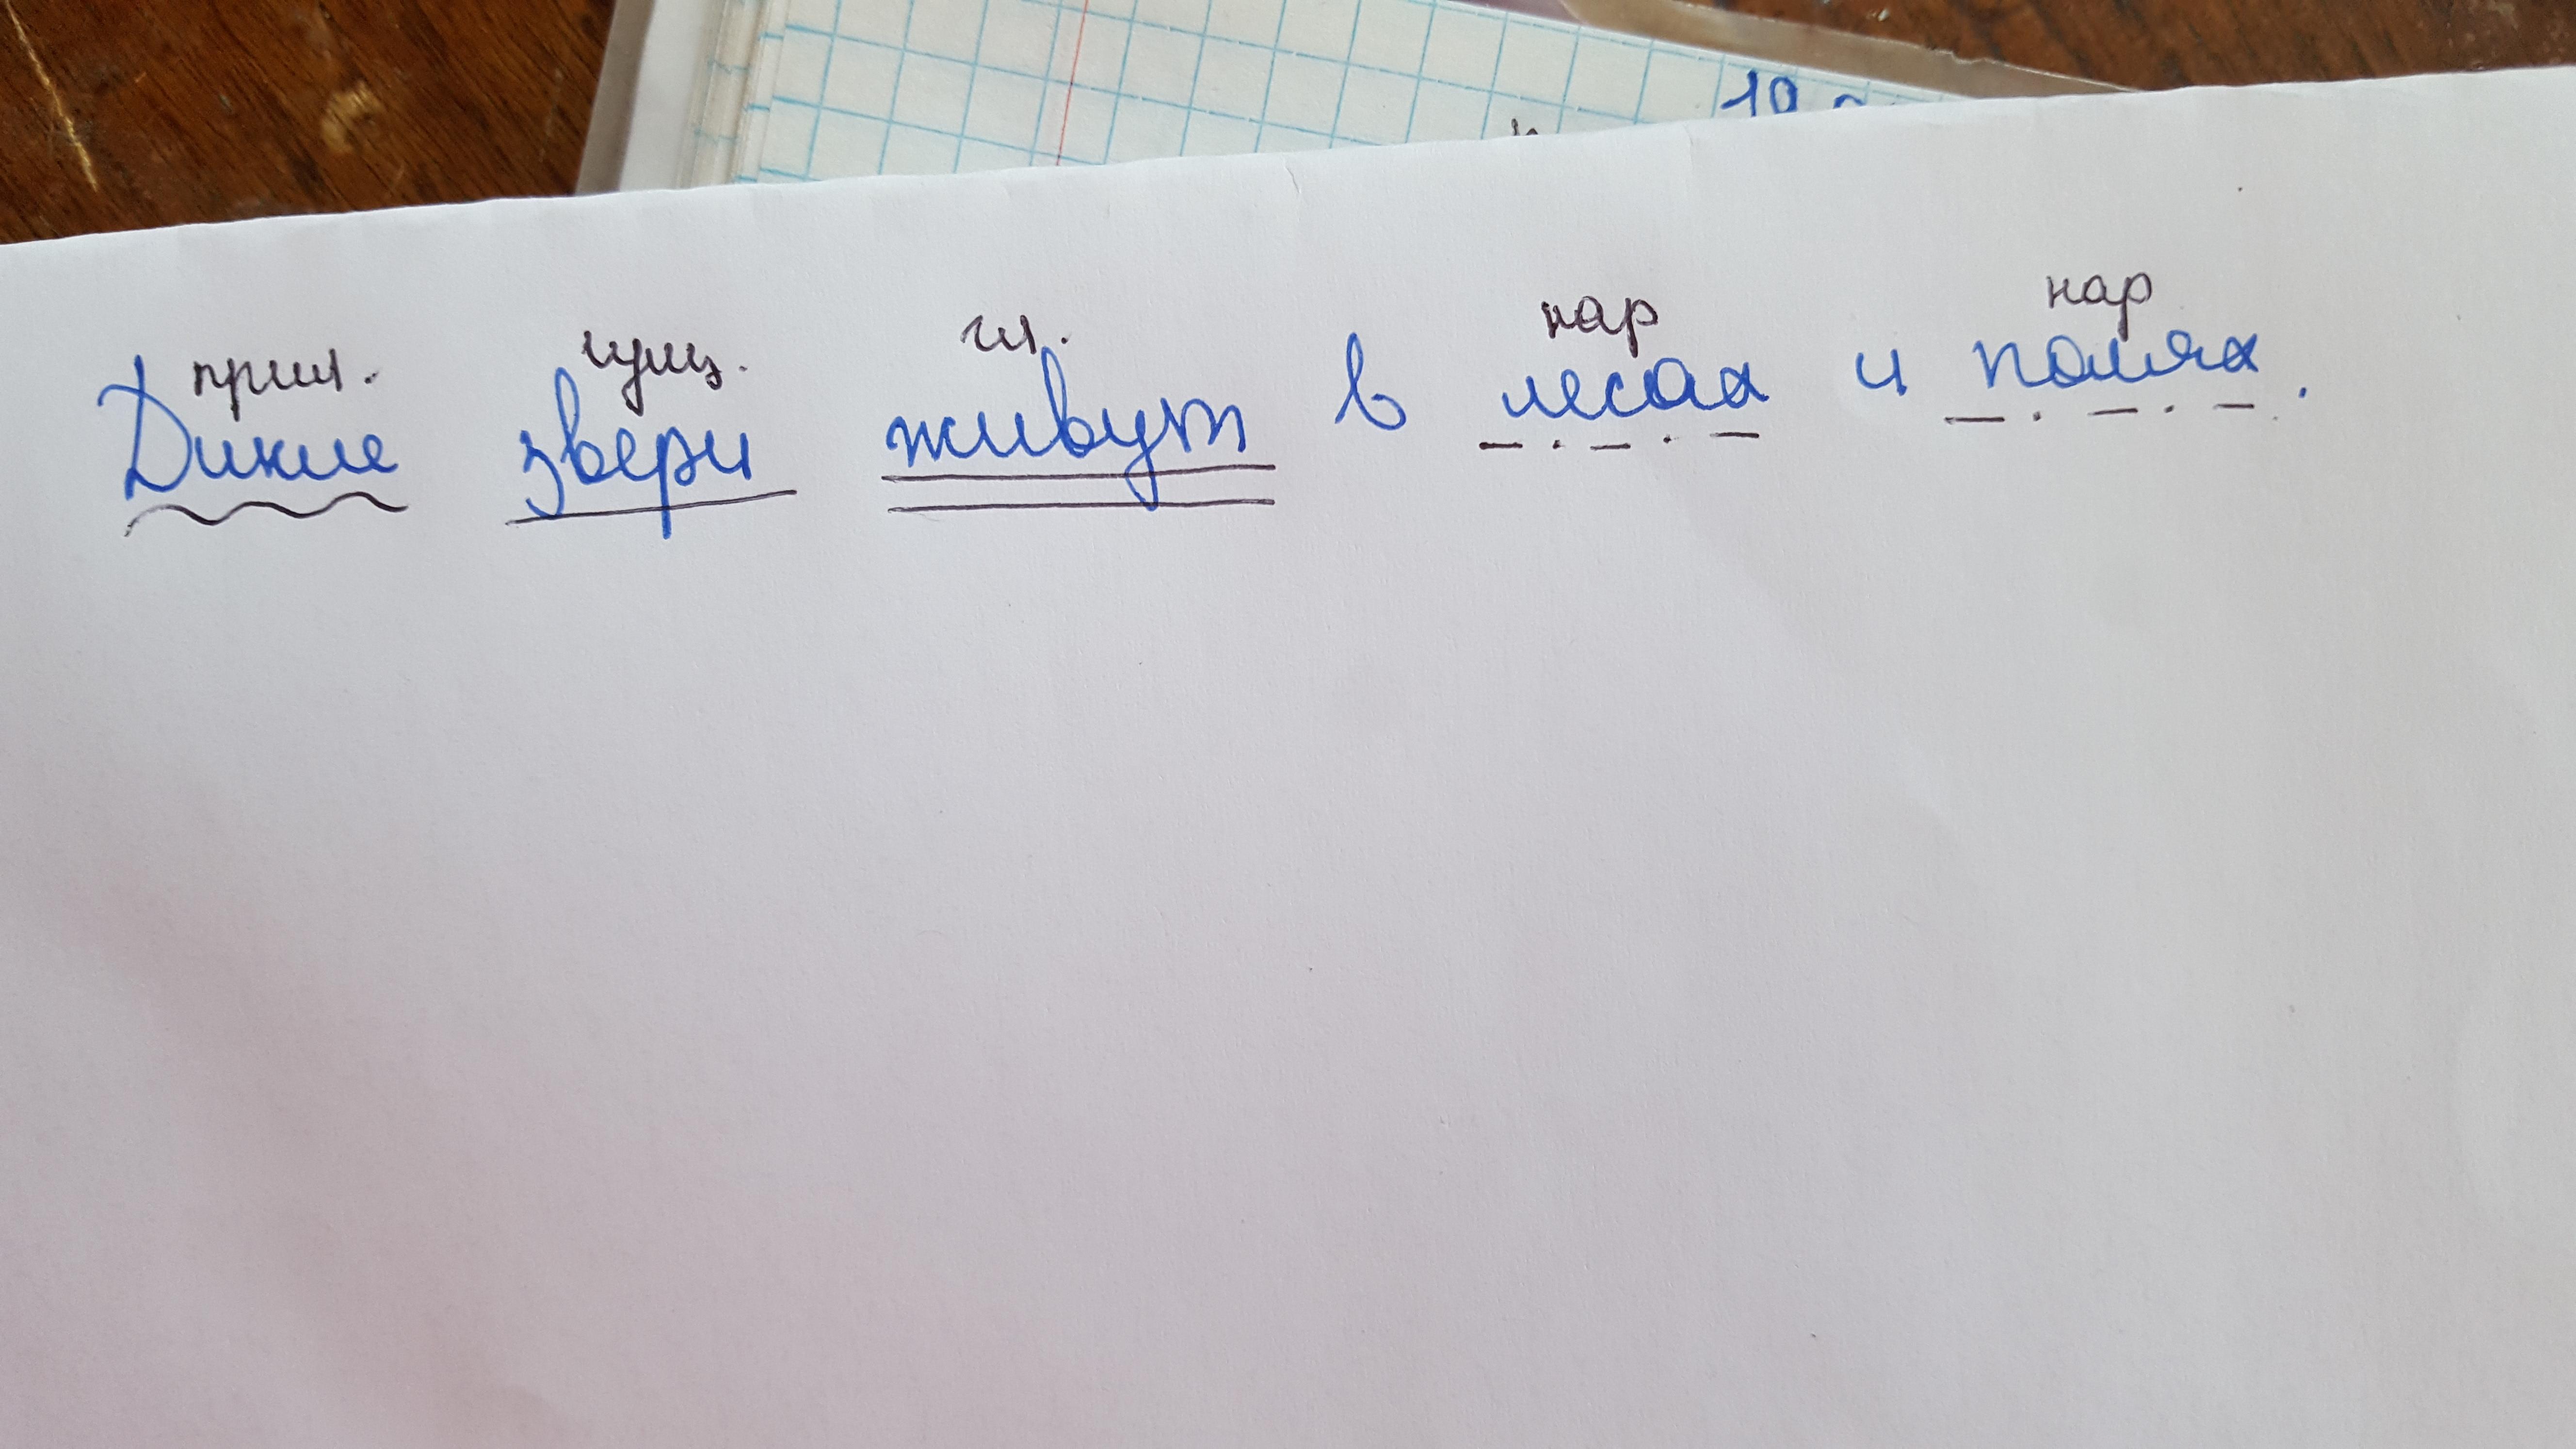 прил. сущ. гл. нар нар
Дикие звери живут в лесах и полях.